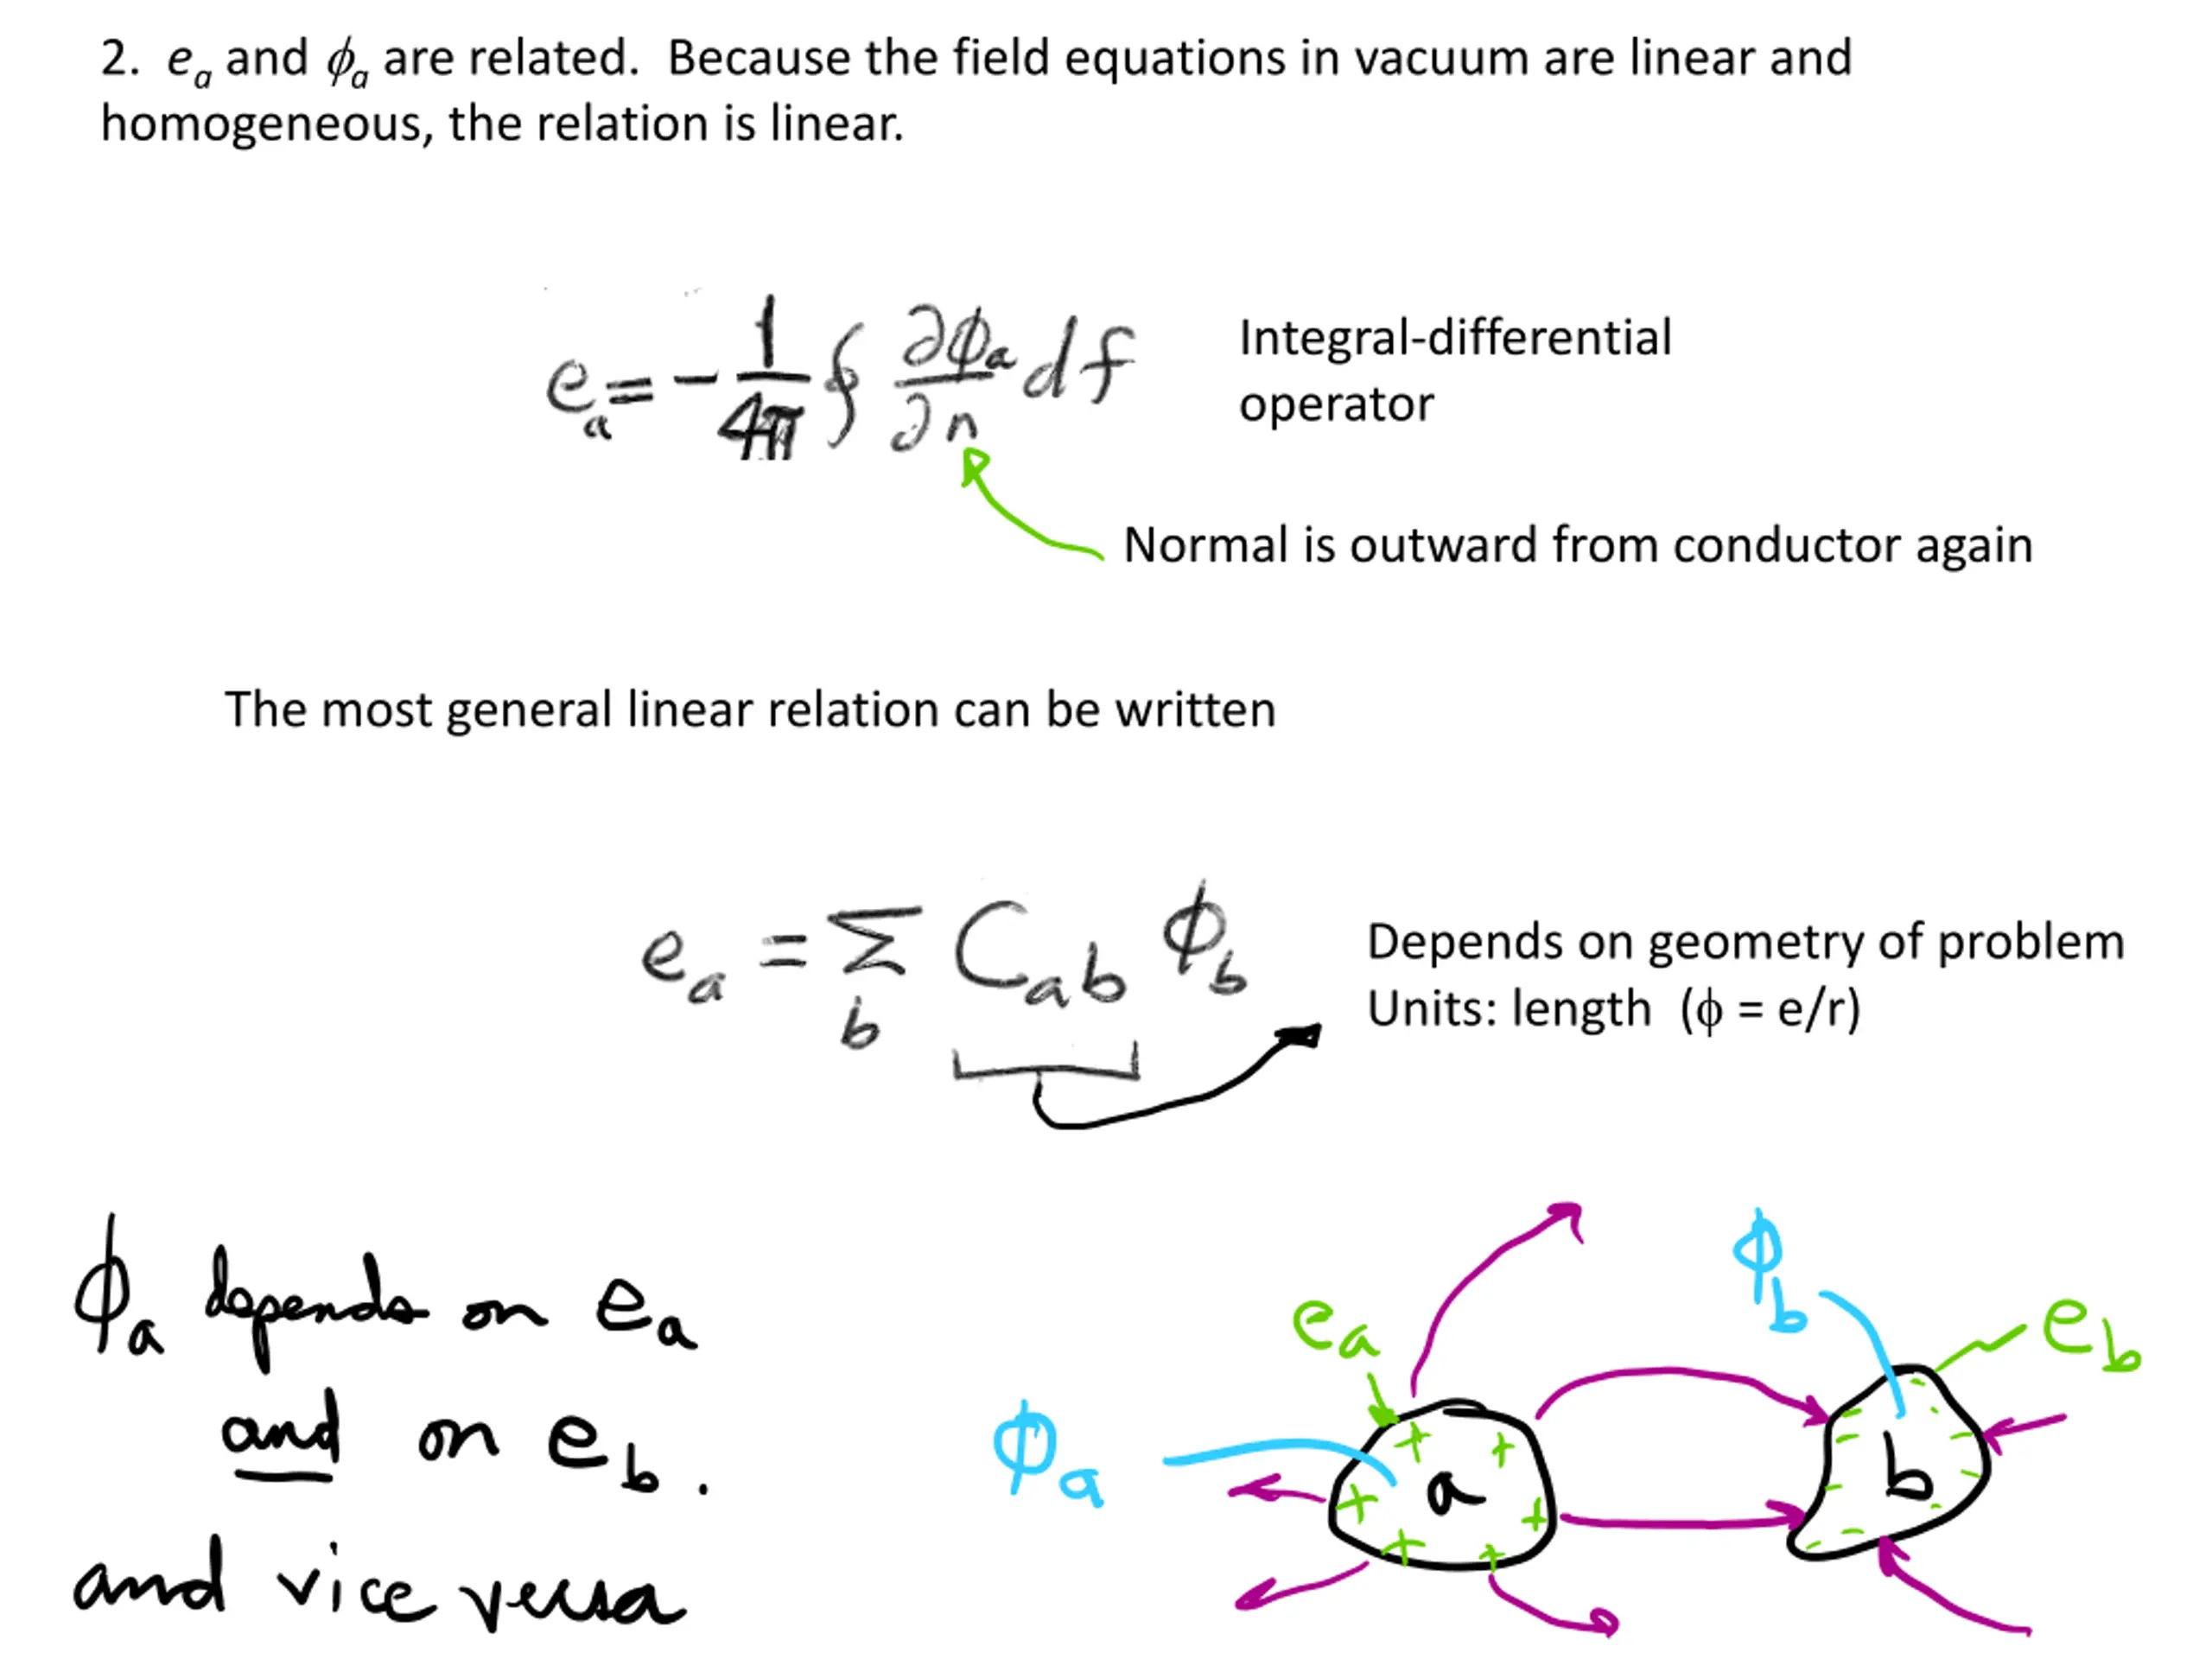 2. eₐ and ϕₐ are related. Because the field equations in vacuum are linear and
homogeneous, the relation is linear.
eₐ = - 1/4π ∮ ∂ϕₐ/∂n df
Integral-differential
operator
Normal is outward from conductor again
The most general linear relation can be written
e_a = Σ_b C_ab ϕ_b
Depends on geometry of problem
Units: length (ϕ = e/r)
ϕₐ depends on eₐ
and on e_b.
and vice versa
ϕₐ
eₐ
a
ϕ_b
e_b
b